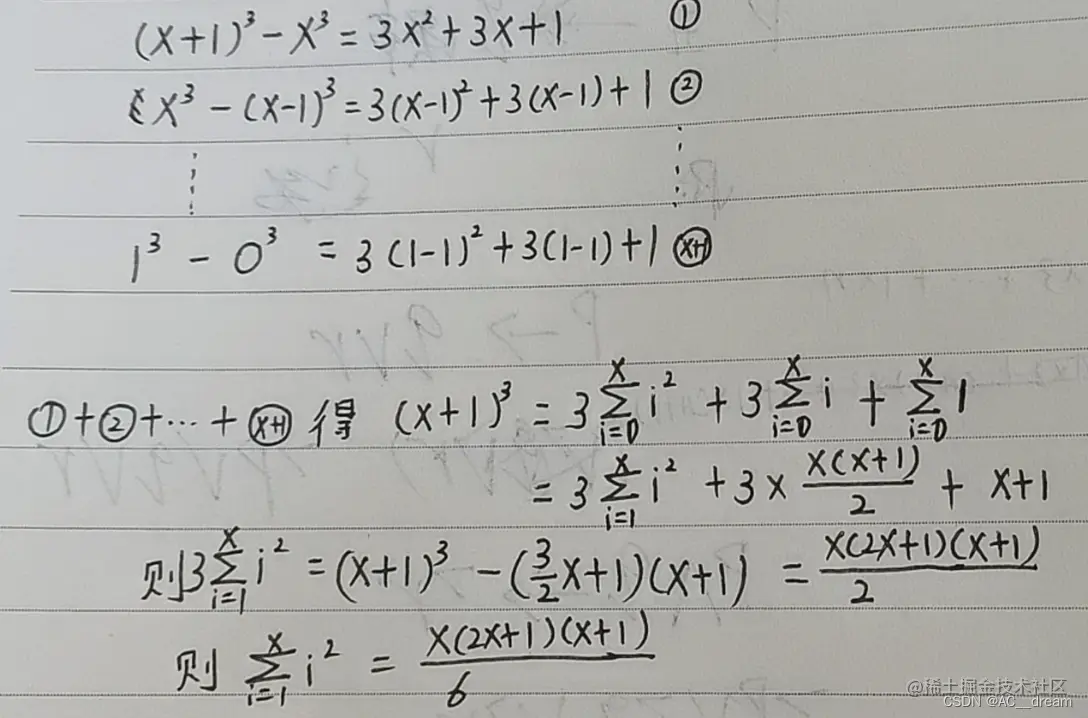 (x+1)³-x³=3x²+3x+1 ①
x³-(x-1)³=3(x-1)²+3(x-1)+1 ②
⋮ ⋮
1³-0³=3(1-1)²+3(1-1)+1 (x+1)
①+②+…+(x+1) 得 (x+1)³=3∑_{i=0}^{x}i²+3∑_{i=0}^{x}i+∑_{i=0}^{x}1
=3∑_{i=1}^{x}i²+3×x(x+1)/2+x+1
则3∑_{i=1}^{x}i²=(x+1)³-(3/2x+1)(x+1)=x(2x+1)(x+1)/2
则 ∑_{i=1}^{x}i²=x(2x+1)(x+1)/6
@稀土掘金技术社区
CSDN @AC__dream